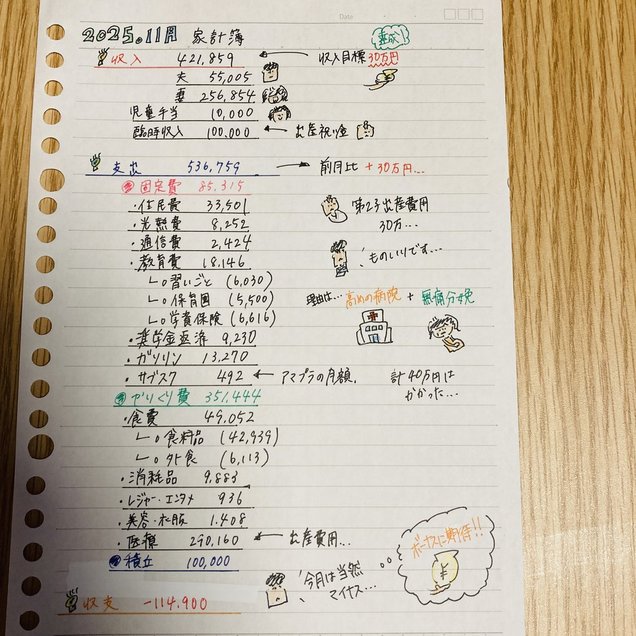 Date
2025.11月 家計簿
達成!
収入 421,859 ← 収入目標 30万円
夫 55,005
妻 256,854
児童手当 10,000
臨時収入 100,000 ← 出産祝い金
支出 536,759 → 前月比 +30万円…
固定費 85,315
・住民費 33,501 第2子出産費用
30万…
・光熱費 8,252
・通信費 2,424
・教育費 18,146 ものいりです…
└○習いごと (6,030)
└○保育園 (5,500) 理由は… 高めの病院 + 無痛分娩
└○学資保険 (6,616)
・奨学金返済 9,230
・ガソリン 13,270
・サブスク 492 ← アマプラの月額. 計40万円は
かかった…
やりくり費 351,444
・食費 49,052
└○食料品 (42,939)
└○外食 (6,113)
・消耗品 9,883
・レジャー・エンタメ 936
・美容・衣服 1,408
・医療 290,160 ← 出産費用…
ボーナスに期待!!
¥
積立 100,000
今月は当然
マイナス…
収支 -114,900